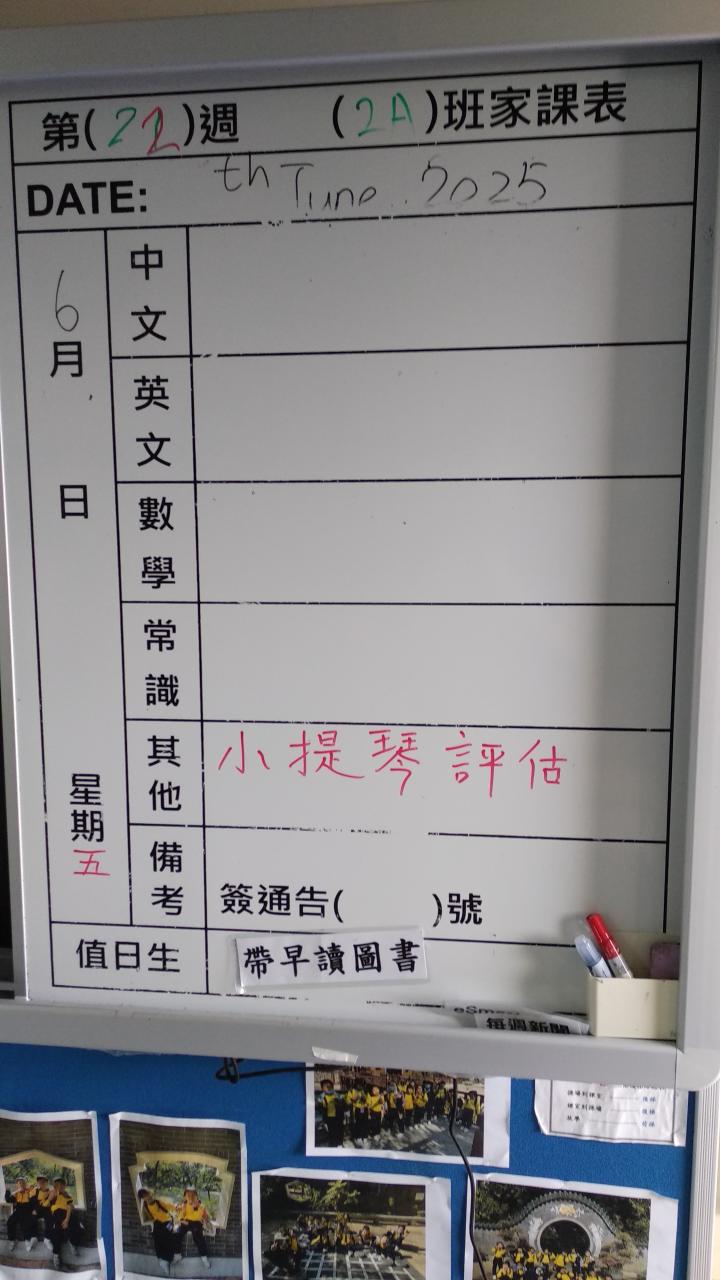 第(22)週 (2A)班家課表
DATE: th June 2025
6月 日 星期五
中文
英文
數學
常識
其他 小提琴評估
備考 簽通告( )號
值日生 帶早讀圖書
每週新聞